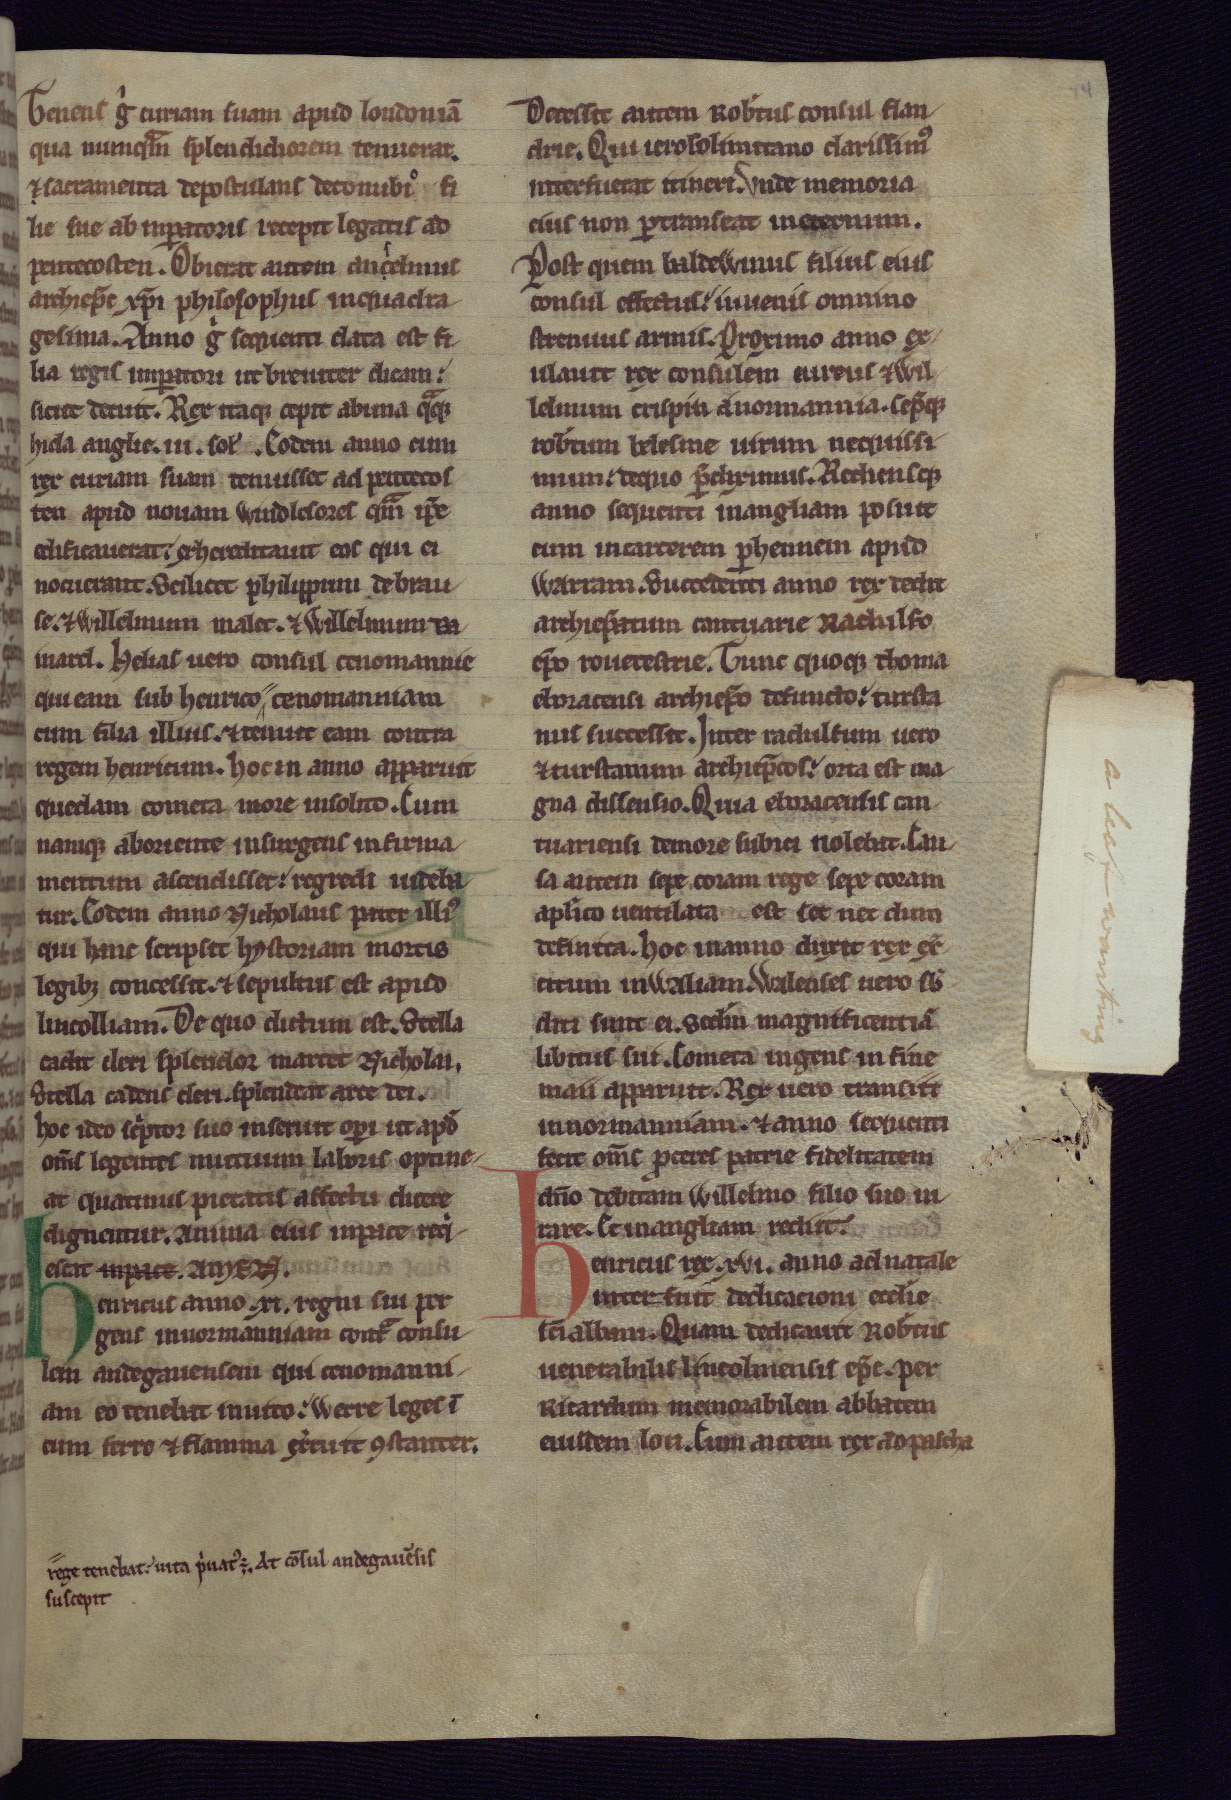 Tenens g̉ curiam suam apud londoniā
qua numq̄m splendidiorem tenuerat.
⁊ sacramenta depostulans deconubiꝰ fi
lie sue ab inꝑatoris recepit legatis ad
pentecosten. Obierat autem ancelmus
archiep̄c xp̄i philosophus inquadra
gesima. Anno g̉ sequenti data est fi
lia regis imꝑatori ut breuiter dicam:
sicut decuit. Rex itaq; cepit abuna q̄q;
hida anglie .iii. sol̛. Eodem anno cum
rex curiam suam tenuisset ad pentecos
ten apud nouam windlesores q̄m ip̄e
edificauerat: exhereditauit eos qui ei
nocuerant. Scilicet philippum de brau
se. ⁊ Willelmum malet. ⁊ Willelmum ba
inard. Helias uero consul cenomannie
qui eam sub henrico cenomanniam
cum filia illius. ⁊ tenuit eam contra
regem henricum. hoc in anno apparuit
quedam cometa more insolito. Cum
namq; aboriente insurgens infirma
mentum ascendisset: regredi uideba
tur. Eodem anno Nicholaus pater illiꝰ
qui hanc scripsit hystoriam mortis
legib; concessit. ⁊ sepultus est apud
lincolliam. De quo dictum est. Stella
cadit cleri splendor marcet Nicholai,
Stella cadens cleri. splendeat arce dei.
hoc ideo sc̛ptor suo inseruit oꝑi ut apđ
om̄s legentes mutuum laboris optine
at quatinus pietatis affectu dicere
dignentur. Anima eius inpace req̛
escat inpace. AMEN.
henricus anno .xi. regni sui per
gens innormanniam cont̄ consu
lem andegauensem qui cenomanni
am eo tenebat inuito: werre leges ī
eum ferro ⁊ flamma ex̛cuit ꝯstanter.
rege tenebat: uita p̛uatꝰ ē. At cōsul andegauēsis
suscepit
Decessit autem Rob̛tus consul flan
drie. Qui ierosolimitano clarissimꝰ
interfuerat itineri. Vnde memoria
eius non ꝑtranseat ineternum.
Post quem baldewinus filius eius
consul effectus: iuuenis omnino
strenuus armis. Proximo anno ex
ulauit rex consulem eureus ⁊ Wil
lelmum crispin anormannia. sep̄q;
rob̛tum belesme uirum nequissi
mum: dequo p̄diximus. Rediensq;
anno sequenti inangliam posuit
eum incarcerem ꝑhennem apud
Warram. Succedenti anno rex dedit
archiep̄atum cantuarie Radulfo
ep̄o rouecestrie. Tunc quoq; thoma
eboracensi archiep̄o defuncto: tursta
nus successit. Inter radulfum uero
⁊ turstanum archiep̄cos: orta est ma
gna dissensio. Quia eboracensis can
tuariensi demore subici nolebat. Cau
sa autem sepe coram rege sepe coram
apl̛ico uentilata est set nec dum
definita. hoc inanno duxit rex ex̄
citum inWaliam. Walenses uero sb̄
diti sunt ei. Secđm magnificentiā
libitus sui. Cometa ingens in fine
maii apparuit. Rex uero transiit
innormanniam. ⁊ anno sequenti
fecit om̄s proceres patrie fidelitatem
dn̄o debitam Willelmo filio suo iu
rare. Et inangliam rediit:
henricus rex .xvi. anno ad natale
interfuit dedicacioni eccl̛ie
sc̄i albani. Quam dedicauit Rob̛tus
uenerabilis lincolniensis ep̄c. per
Ricardum memorabilem abbatem
eiusdem loci. Cum autem rex ad pascha
a leaf wanting